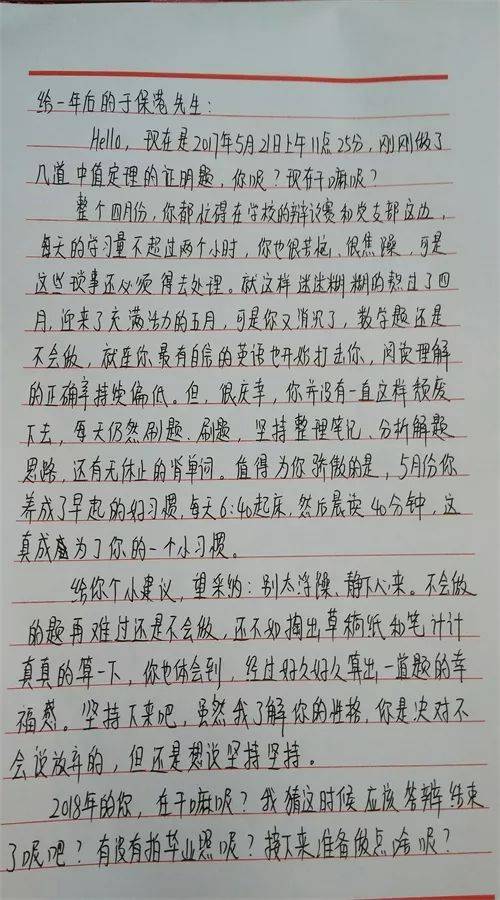 给一年后的于保港先生:
Hello, 现在是2017年5月21日上午11点25分,刚刚做了
几道中值定理的证明题,你呢?现在干嘛呢?
整个四月份,你都忙得在学校的辩论赛和党支部这边,
每天的学习量不超过两个小时,你也很苦恼、很焦躁,可是
这些琐事还必须得去处理。就这样迷迷糊糊的熬过了四
月,迎来了充满活力的五月,可是你又消沉了,数学题还是
不会做,就连你最有自信的英语也开始打击你,阅读理解
的正确率持续偏低。但,很庆幸,你并没有一直这样颓废
下去,每天仍然刷题、刷题,坚持整理笔记、分析解题
思路,还有无休止的背单词。值得为你骄傲的是,5月份你
养成了早起的好习惯,每天6:40起床,然后晨读40分钟,这
真成为了你的一个小习惯。
给你个小建议,望采纳:别太浮躁、静下心来。不会做
的题再难过还是不会做,还不如掏出草稿纸和笔计计
真真的算一下,你也体会到,经过好久好久算出一道题的幸
福感。坚持下来吧,虽然我了解你的性格,你是决对不
会说放弃的,但还是想说坚持坚持。
2018年的你,在干嘛呢?我猜这时候应该答辩结束
了呢吧?有没有拍毕业照呢?接下来准备做点啥呢?